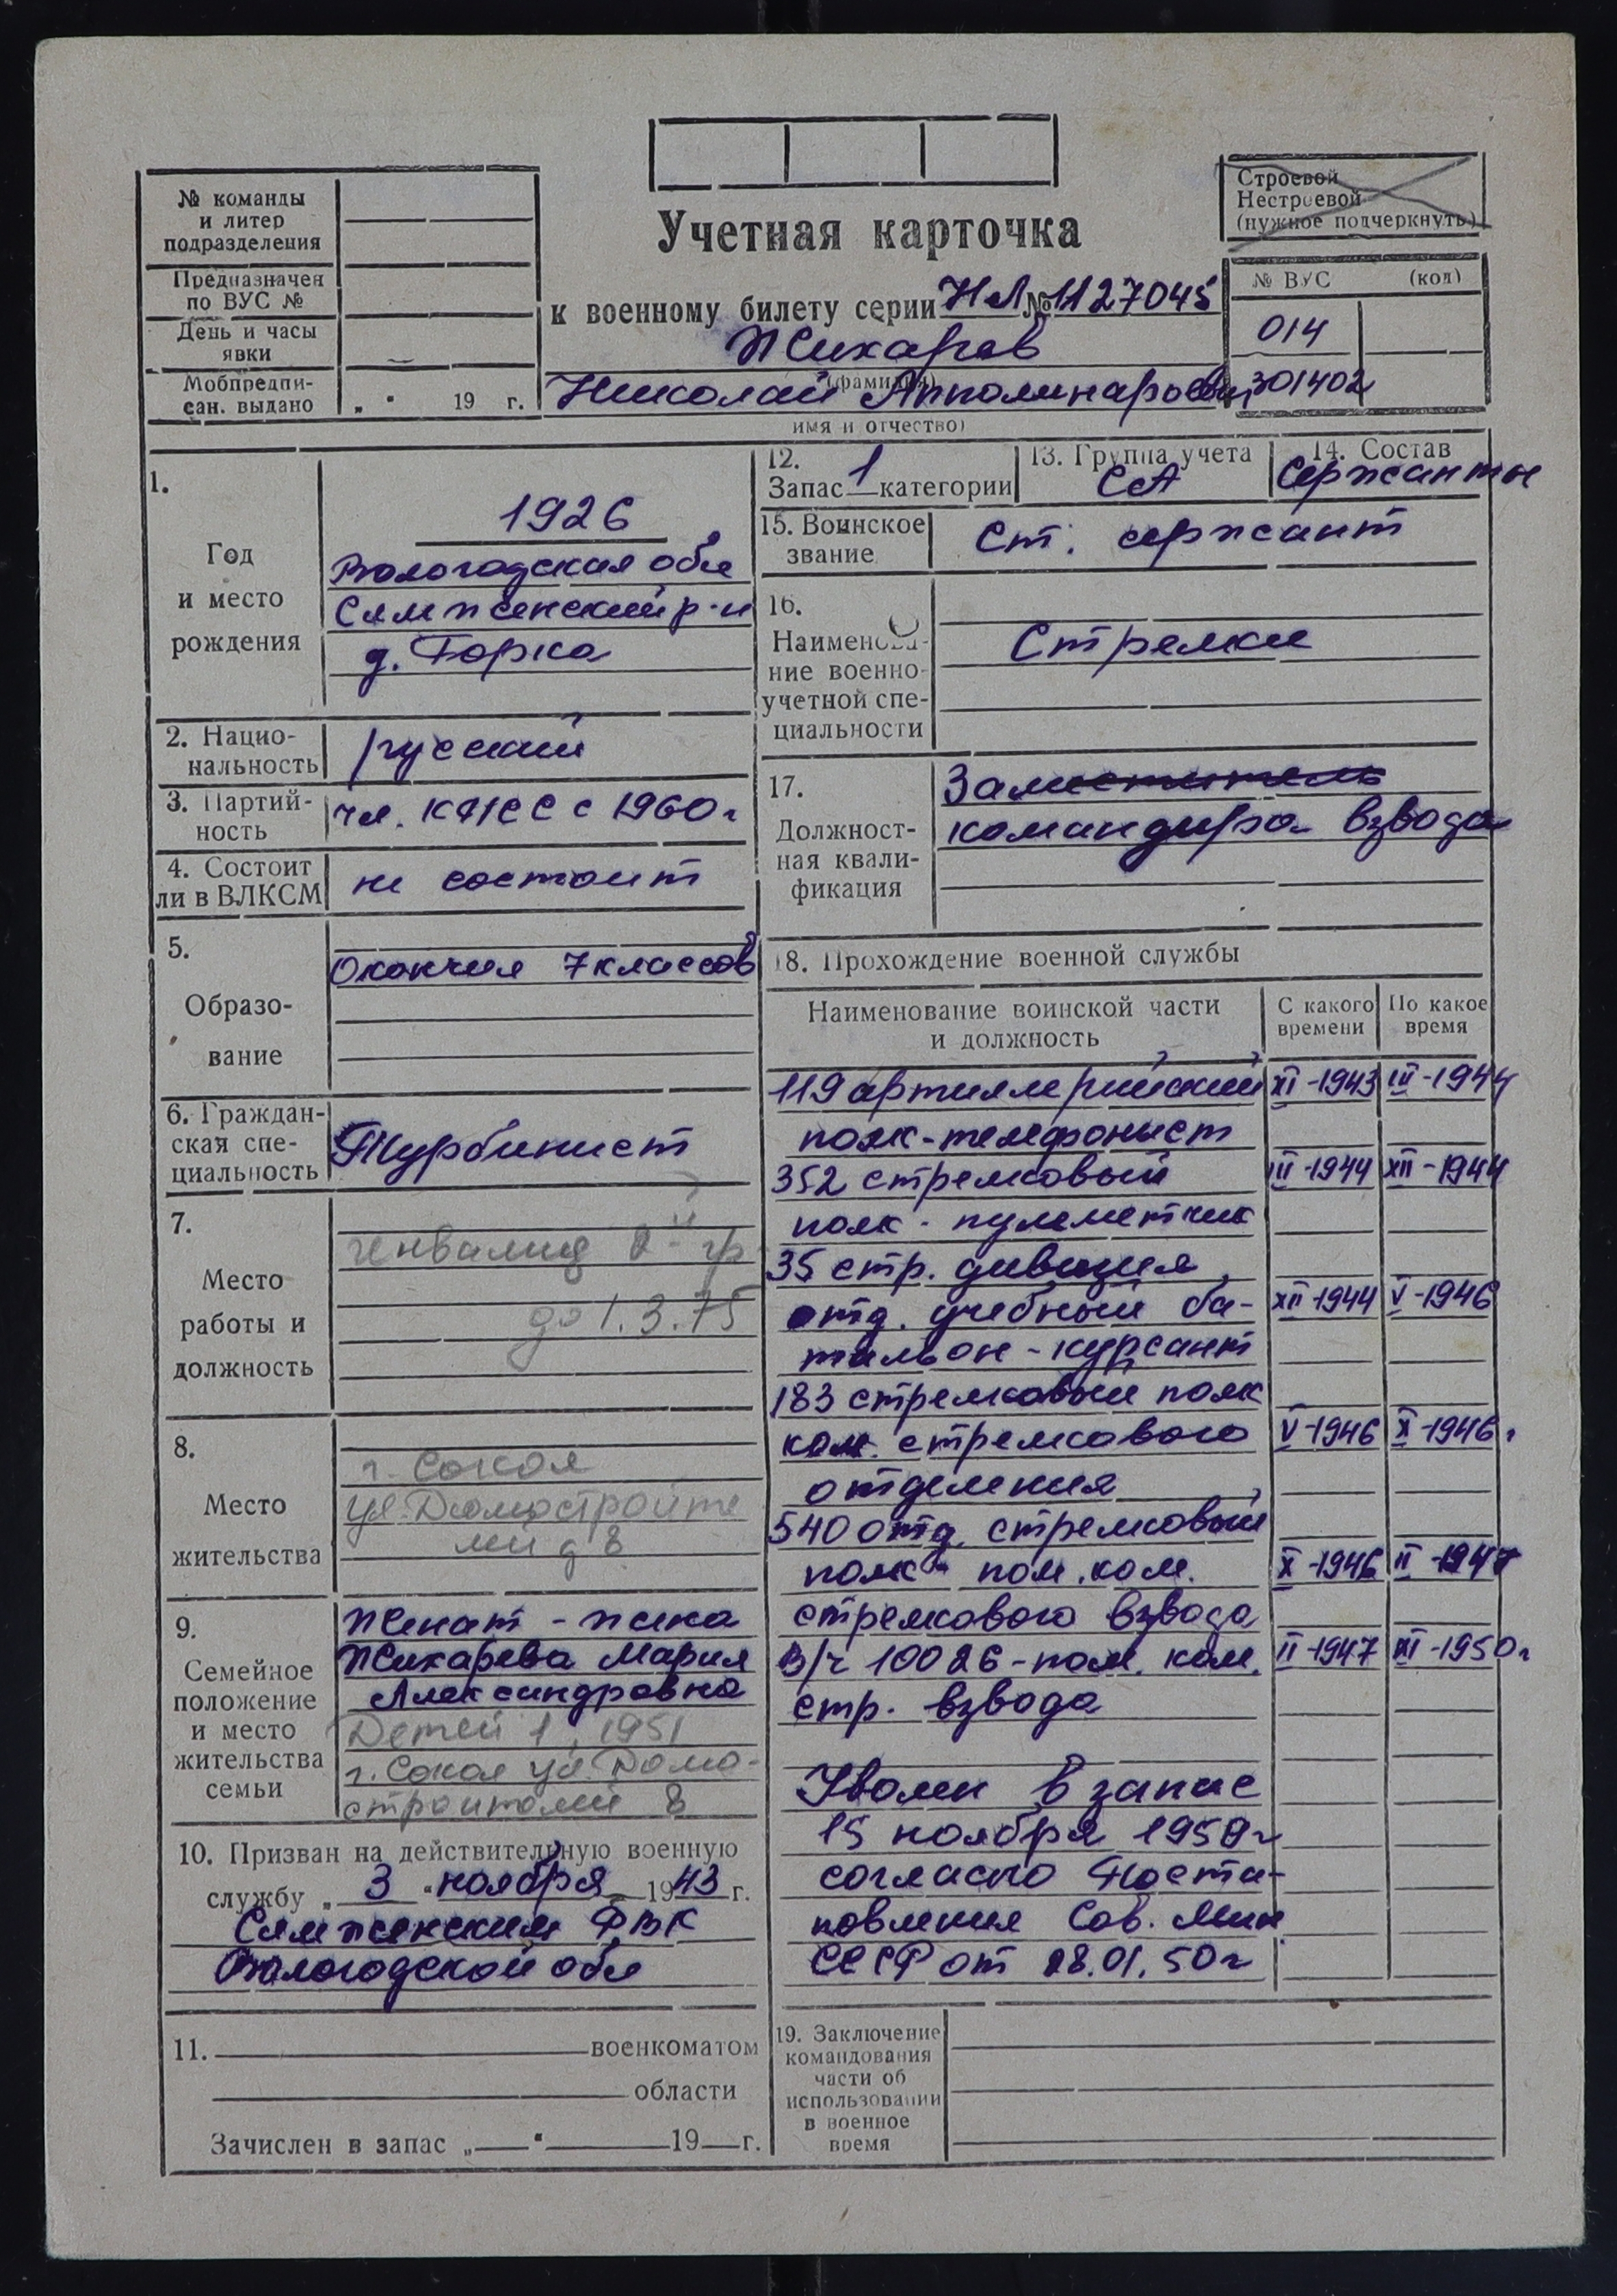 № команды
и литер
подразделения
Предназначен
по ВУС №
День и часы
явки
Мобпредпи-
сан. выдано
„ " 19 г.
Учетная карточка
к военному билету серии НЛ № 1127045
Жихарев
(фамилия)
Николай Апполинарьевич
имя и отчество)
Строевой
Нестроевой
(нужное подчеркнуть)
№ ВУС (код)
014
301402
1.
Год
и место
рождения
1926
Вологодская обл
Сямженский р-н
д. Горка
2. Нацио-
нальность
русский
3. Партий-
ность
чл. КПСС с 1960г
4. Состоит
ли в ВЛКСМ
не состоит
5.
Образо-
вание
Окончил 7 классов
6. Граждан-
ская спе-
циальность
Турбинист
7.
Место
работы и
должность
инвалид 2-й гр
до 1.3.75
8.
Место
жительства
г. Сокол
ул. Домостроите
лей д 8
9.
Семейное
положение
и место
жительства
семьи
Женат - жена
Жихарева Мария
Александровна
Детей 1, 1951
г. Сокол ул. Домо-
строителей 8
10. Призван на действительную военную
службу „ 3 " ноября 1943 г.
Сямженским РВК
Вологодской обл
11. военкоматом
области
Зачислен в запас „ " 19 г.
12.
Запас 1 категории
13. Группа учета
СА
14. Состав
Сержанты
15. Воинское
звание
Ст. сержант
16.
Наименова-
ние военно-
учетной спе-
циальности
Стрелки
17.
Должност-
ная квали-
фикация
Заместитель
командира взвода
18. Прохождение военной службы
Наименование воинской части
и должность
С какого
времени
По какое
время
119 артиллерийский XI-1943 III-1944
полк-телефонист
352 стрелковый III-1944 XII-1944
полк - пулеметчик
35 стр. дивизия
отд. учебный ба- XII-1944 V-1946
тальон - курсант
183 стрелковый полк
ком. стрелкового V-1946 X-1946г
отделения
540 отд. стрелковый
полк - пом. ком. X-1946 II-1947
стрелкового взвода
В/ч 10026 - пом. ком. II-1947 XI-1950г
стр. взвода
Уволен в запас
15 ноября 1950г
согласно Поста-
новления Сов. Мин
СССР от 28.01.50г
19. Заключение
командования
части об
использовании
в военное
время